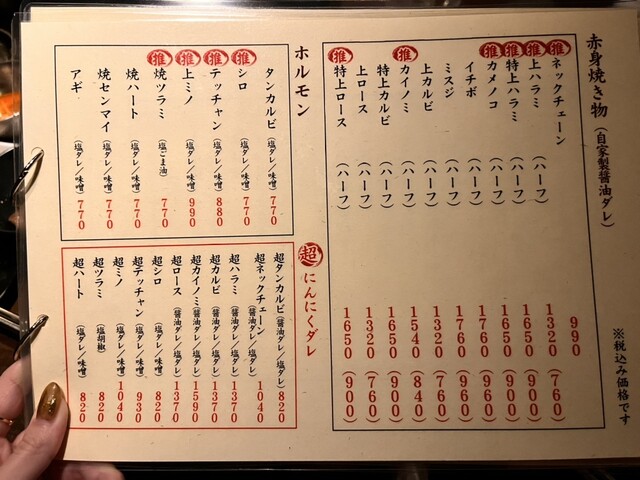 赤身焼き物（自家製醤油ダレ）
※税込み価格です
推 ネックチェーン 990
推 上ハラミ （ハーフ） 1320（760）
推 特上ハラミ （ハーフ） 1650（900）
推 カメノコ （ハーフ） 1650（900）
イチボ （ハーフ） 1760（960）
ミスジ （ハーフ） 1760（960）
上カルビ （ハーフ） 1320（760）
推 カイノミ （ハーフ） 1540（840）
特上カルビ （ハーフ） 1650（900）
上ロース （ハーフ） 1320（760）
特上ロース （ハーフ） 1650（900）
ホルモン
タンカルビ（塩ダレ/味噌） 770
推 シロ（塩ダレ/味噌） 770
推 テッチャン（塩ダレ/味噌） 880
推 上ミノ（塩ダレ/味噌） 990
推 焼ツラミ（塩ごま油） 770
焼ハート（塩ダレ/味噌） 770
焼センマイ（塩ダレ/味噌） 770
アギ（塩ダレ/味噌） 770
超 にんにくダレ
超タンカルビ（醤油ダレ/塩ダレ） 820
超ネックチェーン（醤油ダレ/塩ダレ） 1040
超ハラミ（醤油ダレ/塩ダレ） 1370
超カルビ（醤油ダレ/塩ダレ） 1370
超カイノミ（醤油ダレ/塩ダレ） 1590
超ロース（醤油ダレ/塩ダレ） 1370
超シロ（塩ダレ/味噌） 820
超テッチャン（塩ダレ/味噌） 930
超ミノ（塩ダレ/味噌） 1040
超ツラミ（塩胡椒） 820
超ハート（塩ダレ/味噌） 820